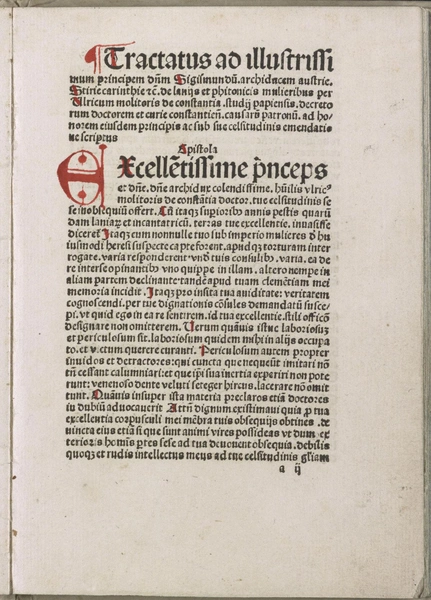 ¶ Tractatus ad illustrissi
mum principem dn̄m Sigismundū. archiducem austrie.
Stirie carinthie ⁊c. de lanijs et phitonicis mulieribus per
Ulricum molitoris de constantia. studij papiensis. decreto
rum doctorem et curie constantien̄. causarꝝ patronū. ad ho
norem eiusdem principis ac sub sue celsitudinis emendatio
ne scriptus
Epistola
Excellētissime p̄nceps
et dn̄e. dn̄e archidux colendissime. hūilis vlric⁹
molitoris de constātia doctor. tue celsitudinis se
se in obsequiū offert. Cū itaqꝫ supiorib⁹ annis pestis quarū
dam laniarꝝ et incantatricū. terras tue excellentie. inuasisse
diceret̄ Itaqꝫ cum nonnulle tuo sub imperio mulieres d̄ hu
iusmodi heresi suspecte capte forent. apud qꝫ torturam inter
rogate. varia responderent vnd̄ tuis consulib⁹. varia. ea de
re interse opinantib⁹ vno quippe in illam. altero nempe in
aliam partem declinante tandē apud tuam clemētiam mei
memoria incidit. Itaqꝫ pro insita tua auiditate: veritatem
cognoscendi. per tue dignationis cōsules demandatū susce-
pi. vt quid ego in ea re sentirem. id tua excellentie. stili officō
designare non omitterem. Uerum quāuis istuc laboriosuꝫ
et periculosum sit. laboriosum quidem mihi in alijs occupa
to. et vectum querere curanti. Periculosum autem propter
inuidos et detractores: qui cuncta que nequeūt imitari nō
tn̄ cessant calumniari: et que ip̄i sua inertia experiri non pote
runt: venenoso dente veluti seteger hircus. lacerare nō omit
tunt. Quāuis insuper ista materia preclaros etiā doctores
iu dubiū aduocauerit Attn̄ dignum existimaui quia ꝓ tua
excellentia corpusculi mei mēbra tuis obsequijs obtines. de
uincta eius etiā si que sunt animi vires possideas vt dum ex
terioris homis p̄res sese ad tua deuouent obsequia. debilis
quoqꝫ et rudis intellectus meus ad tue celsitudinis gl̄iam
a ij